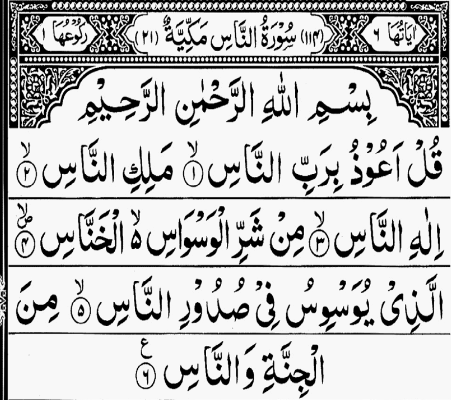 اٰيَاتُهَا ٦ (١١٤) سُوْرَةُ النَّاسِ مَكِّيَّةٌ (٢١) رُكُوْعُهَا ١
بِسْمِ اللهِ الرَّحْمٰنِ الرَّحِيْمِ
قُلْ اَعُوْذُ بِرَبِّ النَّاسِ ۙ﴿١﴾ مَلِكِ النَّاسِ ۙ﴿٢﴾
اِلٰهِ النَّاسِ ۙ﴿٣﴾ مِنْ شَرِّ الْوَسْوَاسِ ۙ۬ الْخَنَّاسِ ۪ۙ﴿٤﴾
الَّذِىْ يُوَسْوِسُ فِىْ صُدُوْرِ النَّاسِ ۙ﴿٥﴾ مِنَ
الْجِنَّةِ وَالنَّاسِ ﴿٦﴾ ع